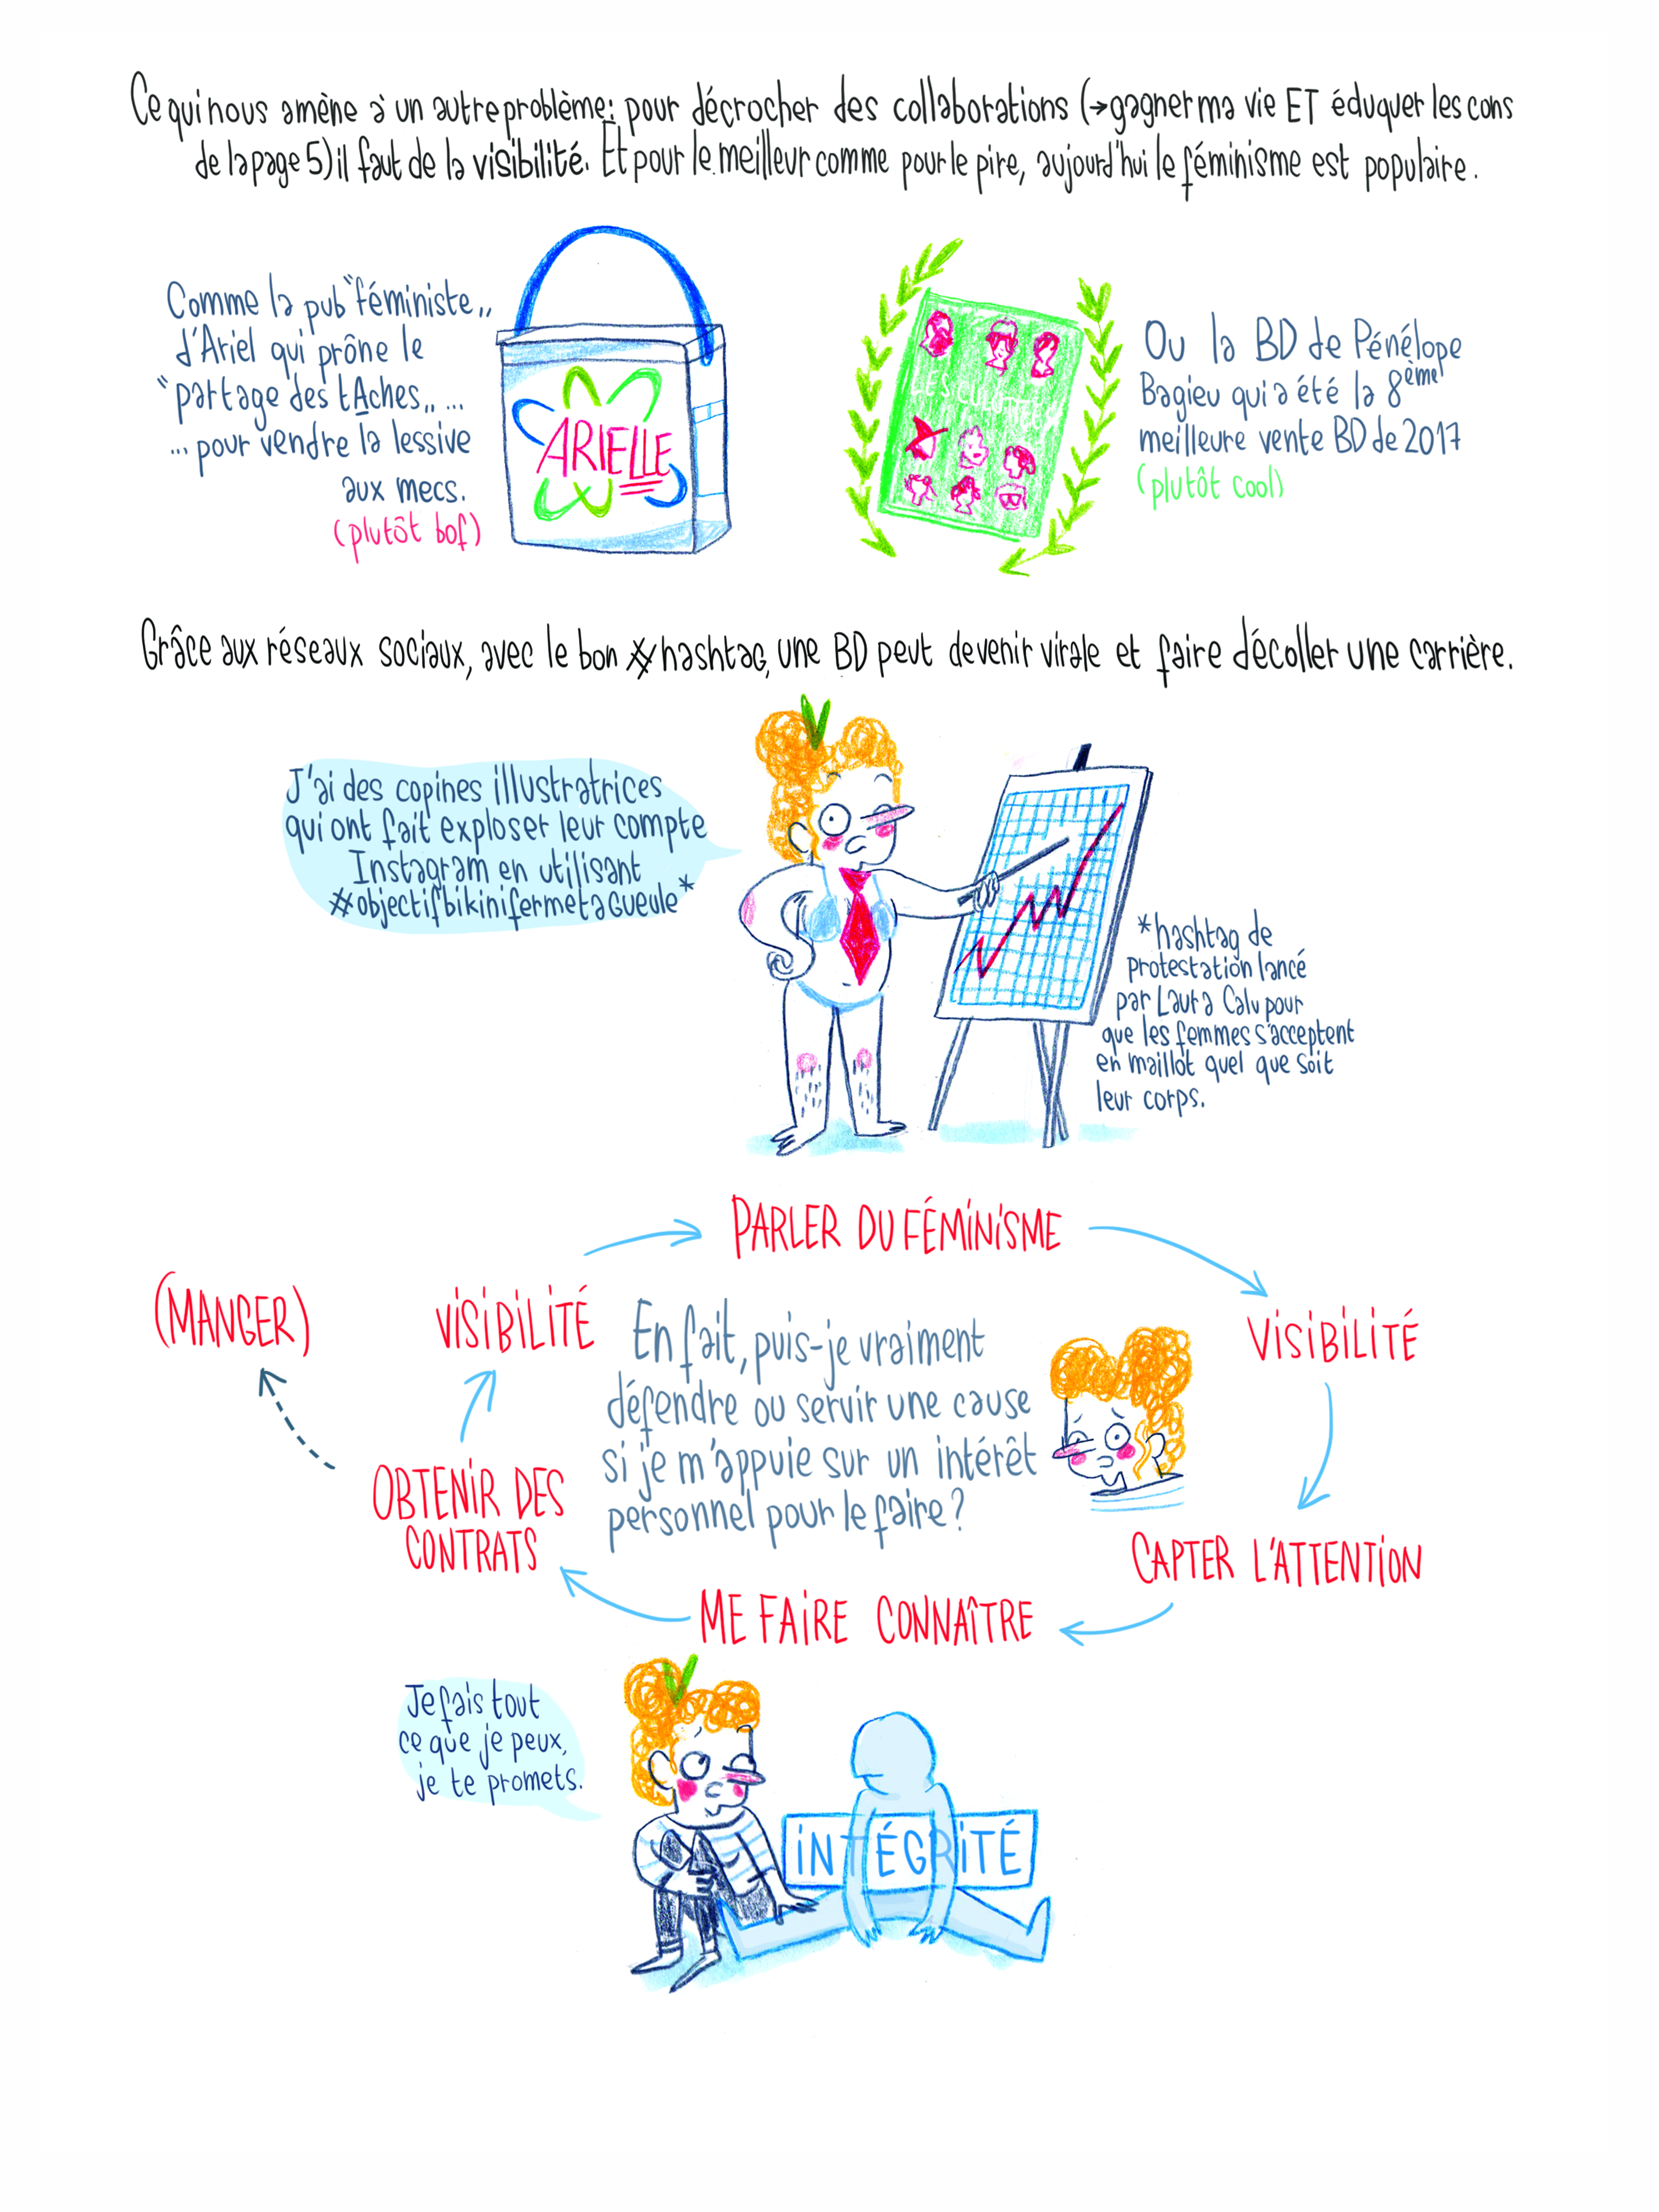 Ce qui nous amène à un autre problème: pour décrocher des collaborations (→gagner ma vie ET éduquer les cons
de la page 5) il faut de la visibilité. Et pour le meilleur comme pour le pire, aujourd'hui le féminisme est populaire.
Comme la pub "féministe"
d'Ariel qui prône le
"partage des tAches" ...
... pour vendre la lessive
aux mecs.
(plutôt bof)
ARIELLE
LES CULOTTÉES
Ou la BD de Pénélope
Bagieu qui a été la 8ème
meilleure vente BD de 2017
(plutôt cool)
Grâce aux réseaux sociaux, avec le bon #hashtag, une BD peut devenir virale et faire décoller une carrière.
J'ai des copines illustratrices
qui ont fait exploser leur compte
Instagram en utilisant
#objectifbikinifermetagueule*
*hashtag de
protestation lancé
par Laura Calu pour
que les femmes s'acceptent
en maillot quel que soit
leur corps.
PARLER DU FÉMINISME
VISIBILITÉ
CAPTER L'ATTENTION
ME FAIRE CONNAÎTRE
OBTENIR DES
CONTRATS
(MANGER)
VISIBILITÉ
En fait, puis-je vraiment
défendre ou servir une cause
si je m'appuie sur un intérêt
personnel pour le faire?
Je fais tout
ce que je peux,
je te promets.
INTÉGRITÉ